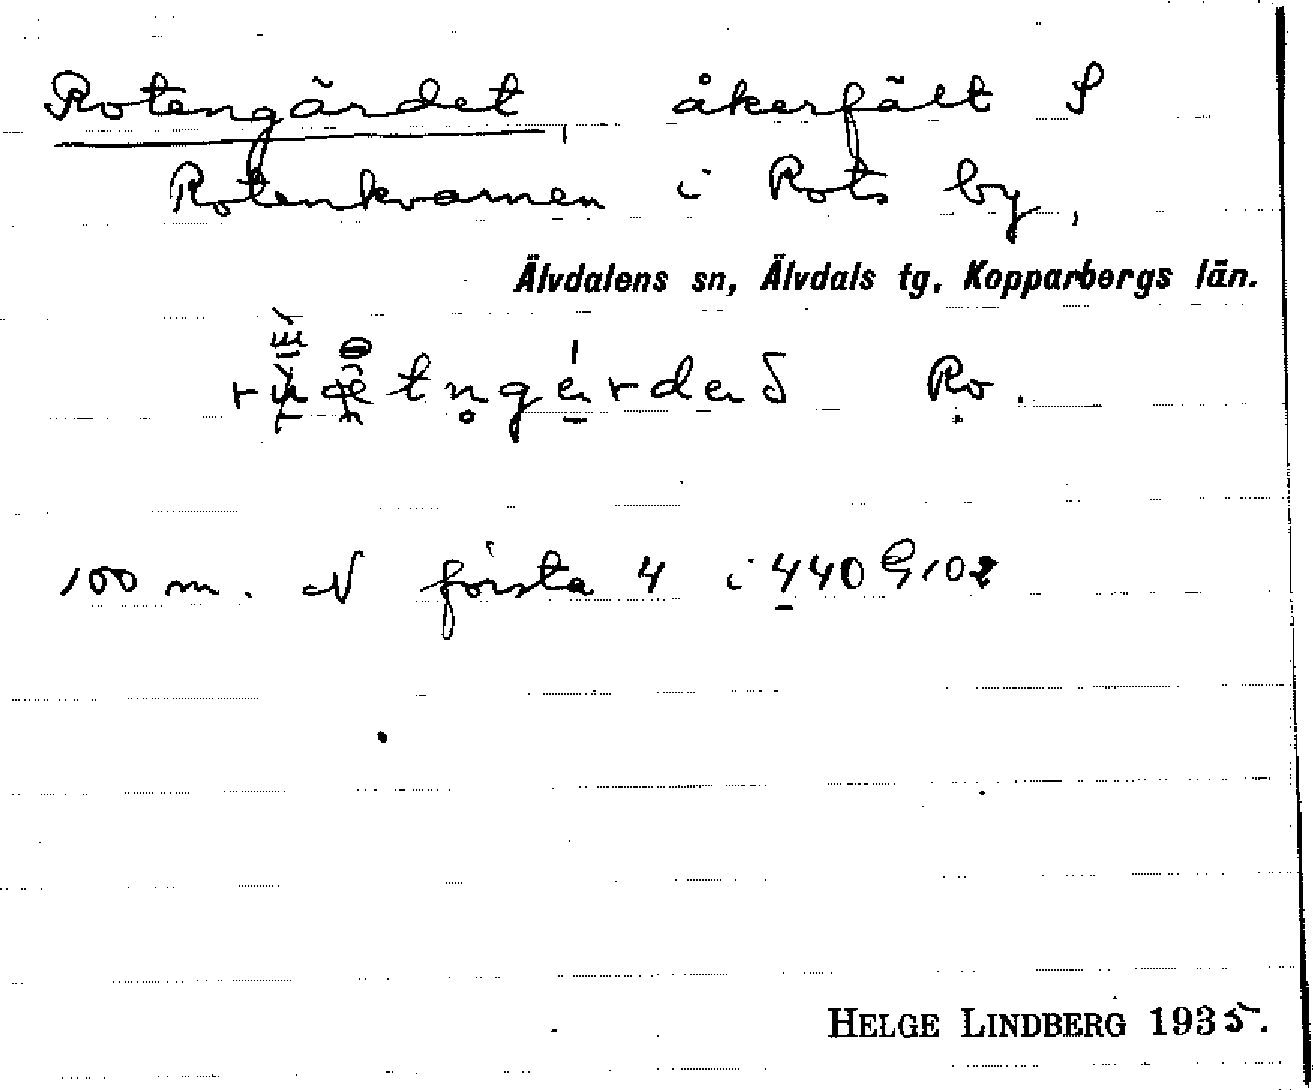 Rotengärdet, åkerfält S
Rotenkvarnen i Rots by,
Älvdalens sn, Älvdals tg, Kopparbergs län.
Ro.
100 m. N första 4 i 440 G 102
HELGE LINDBERG 1935.